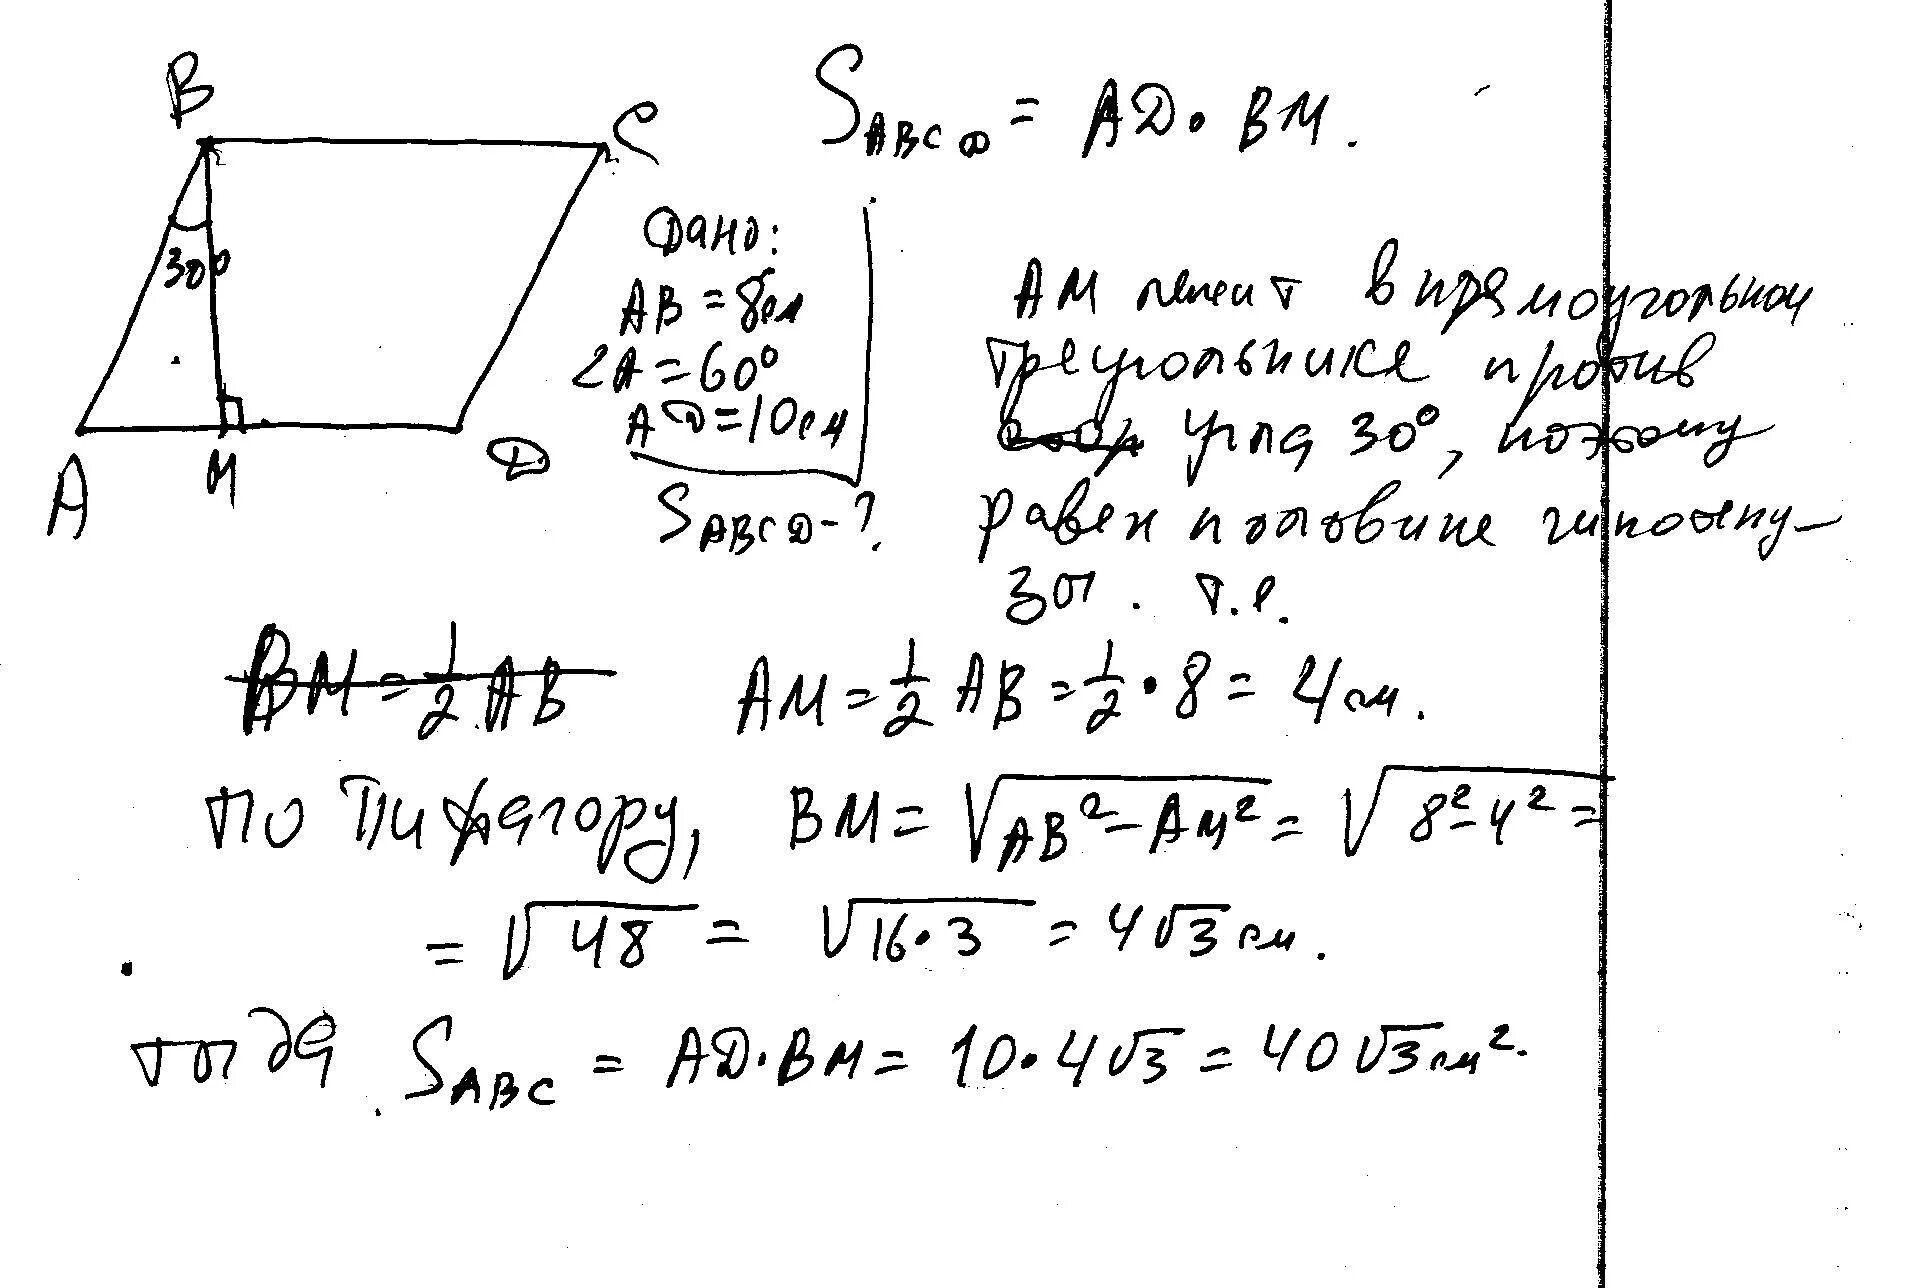 B
C
30°
A
M
D
S_ABCD = AD · BM.
Дано:
AB = 8 см
∠A = 60°
AD = 10 см
S_ABCD - ?
AM лежит в прямоугольном
треугольнике против
угла 30°, поэтому
равен половине гипотену-
зы. т.е.
BM = 1/2 AB
AM = 1/2 AB = 1/2 · 8 = 4 см.
по Пифагору, BM = √(AB² - AM²) = √(8² - 4²) =
= √48 = √(16·3) = 4√3 см.
тогда S_ABC = AD·BM = 10·4√3 = 40√3 см².